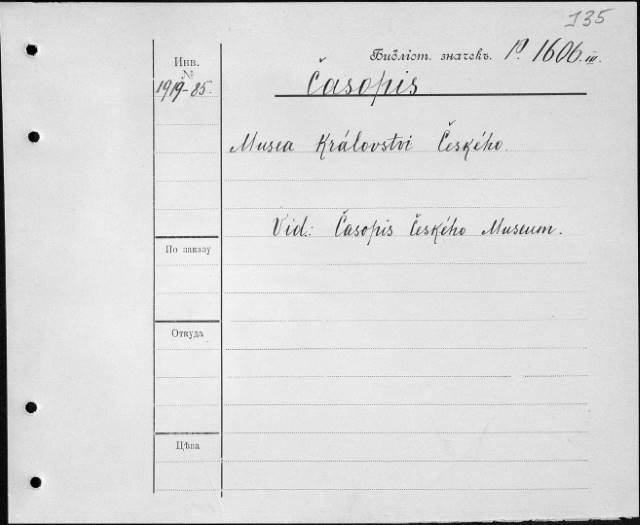 135
Инв.
№
1919-85.
Библіот. значекъ. P. 1606. III.
Časopis
Musea Království Českého.
Vid.: Časopis Českého Museum.
По заказу
Откуда
Цѣна